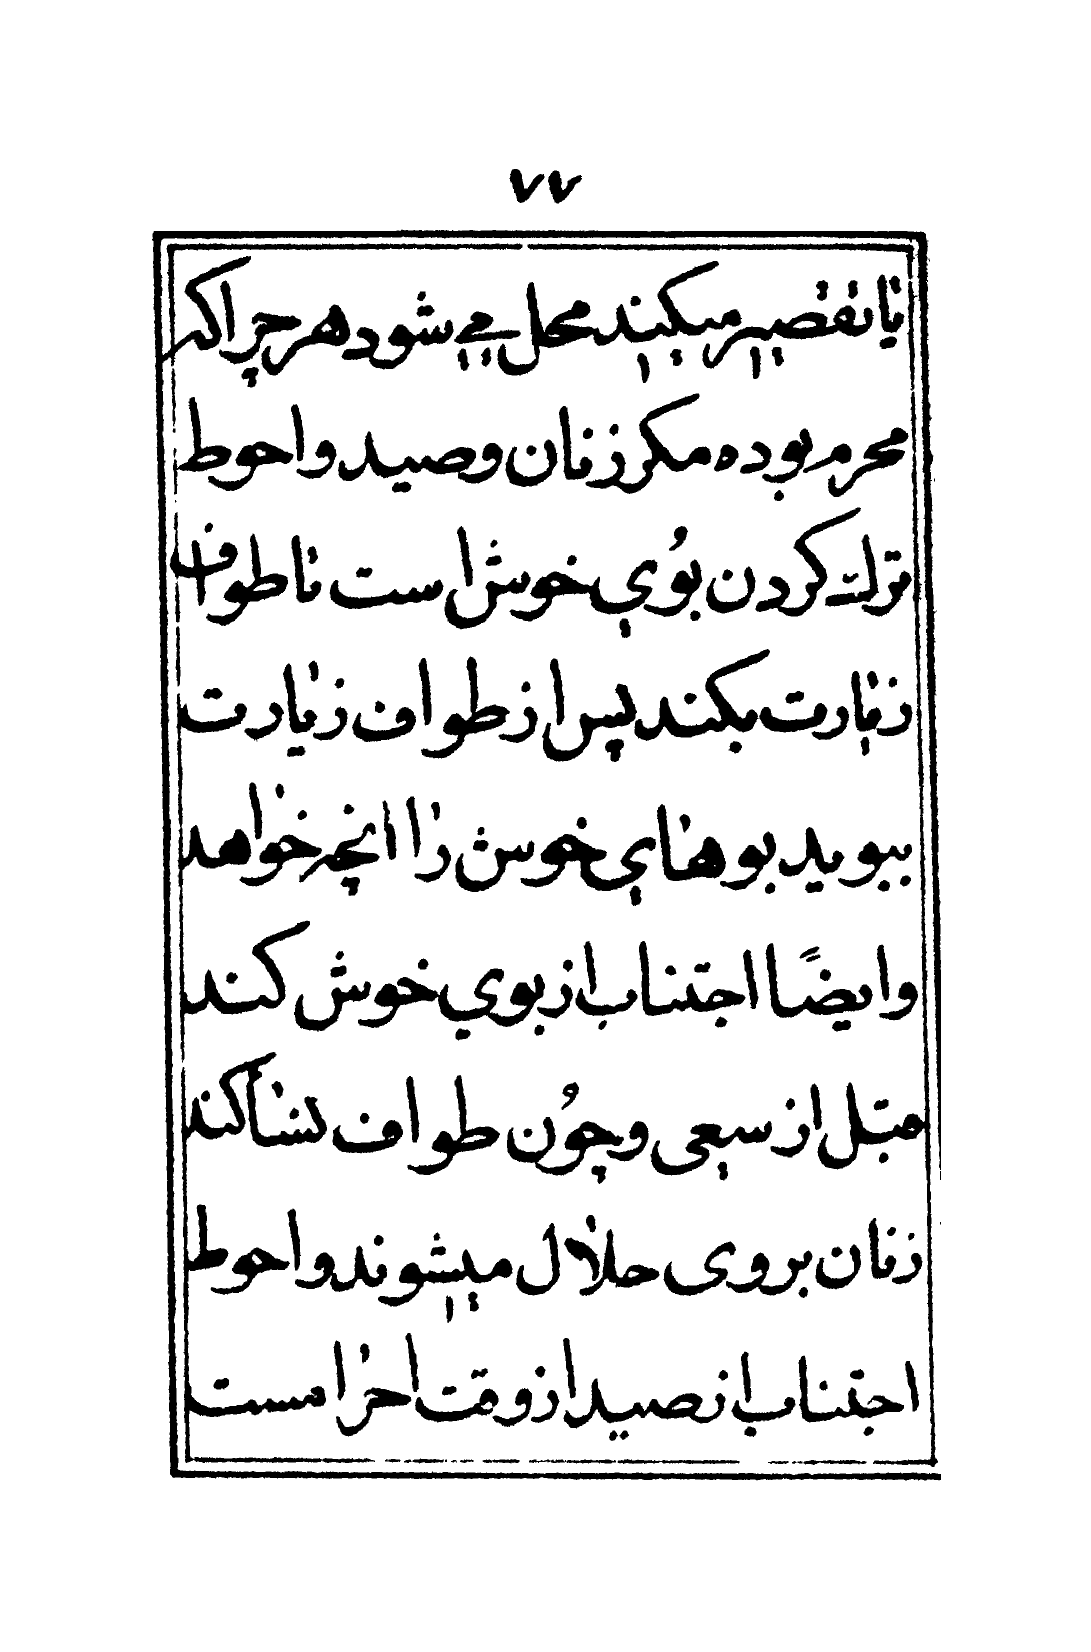 ۷۷
یا تقصیر میکند محل می شود هر چرا که
محرم بوده مکر زنان و صید و احوط
ترك كردن بُوی خوش است تا طواف
زیارت بکند پس از طواف زیارت
ببوید بوهای خوش را انچه خواهد
و ایضًا اجتناب از بوی خوش کند
قبل از سعی و چُون طواف نسأ کند
زنان بروی حلال میشوند و احوط
اجتناب از صید از وقت احرامست